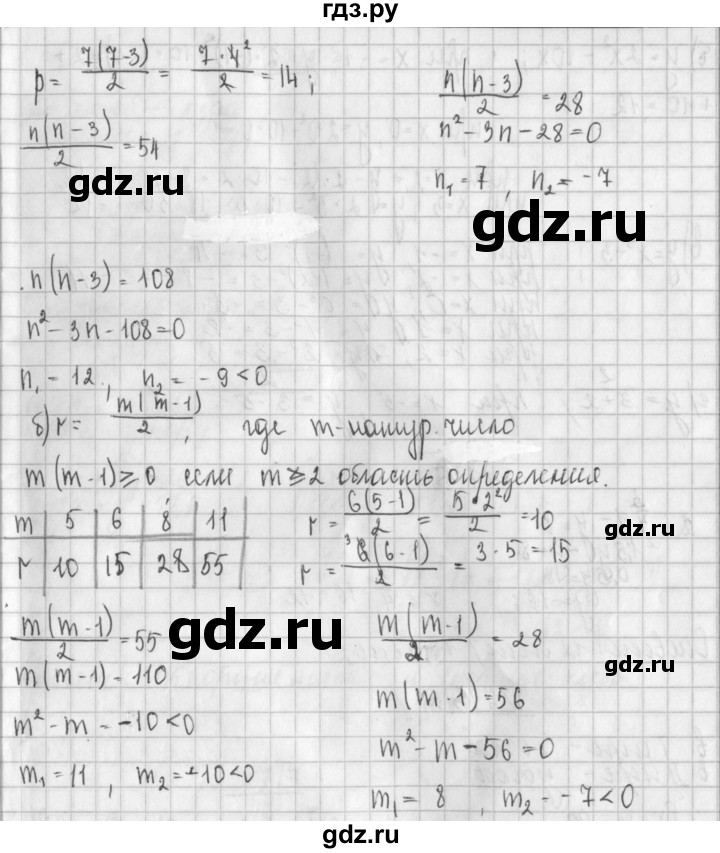 гдз.ру
p = 7(7-3)/2 = 7·4²/2 = 14;
n(n-3)/2 = 28
n(n-3)/2 = 54
n² - 3n - 28 = 0
gdz.ru
n₁ = 7, n₂ = -7
gdz.ru
n(n-3) = 108
n² - 3n - 108 = 0
n₁ - 12, n₂ = -9 < 0
б) r = m(m-1)/2, где m-натур. число
m(m-1) ≥ 0 если m ≥ 2 область определения.
m | 5 | 6 | 8 | 11
r | 10 | 15 | 28 | 55
r = 6(5-1)/2 = 5·2²/2 = 10
gdz.ru
r = ³6(6-1)/2 = 3·5 = 15
m(m-1)/2 = 55
gdz.ru
m(m-1)/2 = 28
gdz.ru
m(m-1) - 110
m(m-1) = 56
m² - m - -10 < 0
m² - m - 56 = 0
m₁ = 11, m₂ = -10 < 0
m₁ = 8, m₂ - -7 < 0
gdz.ru